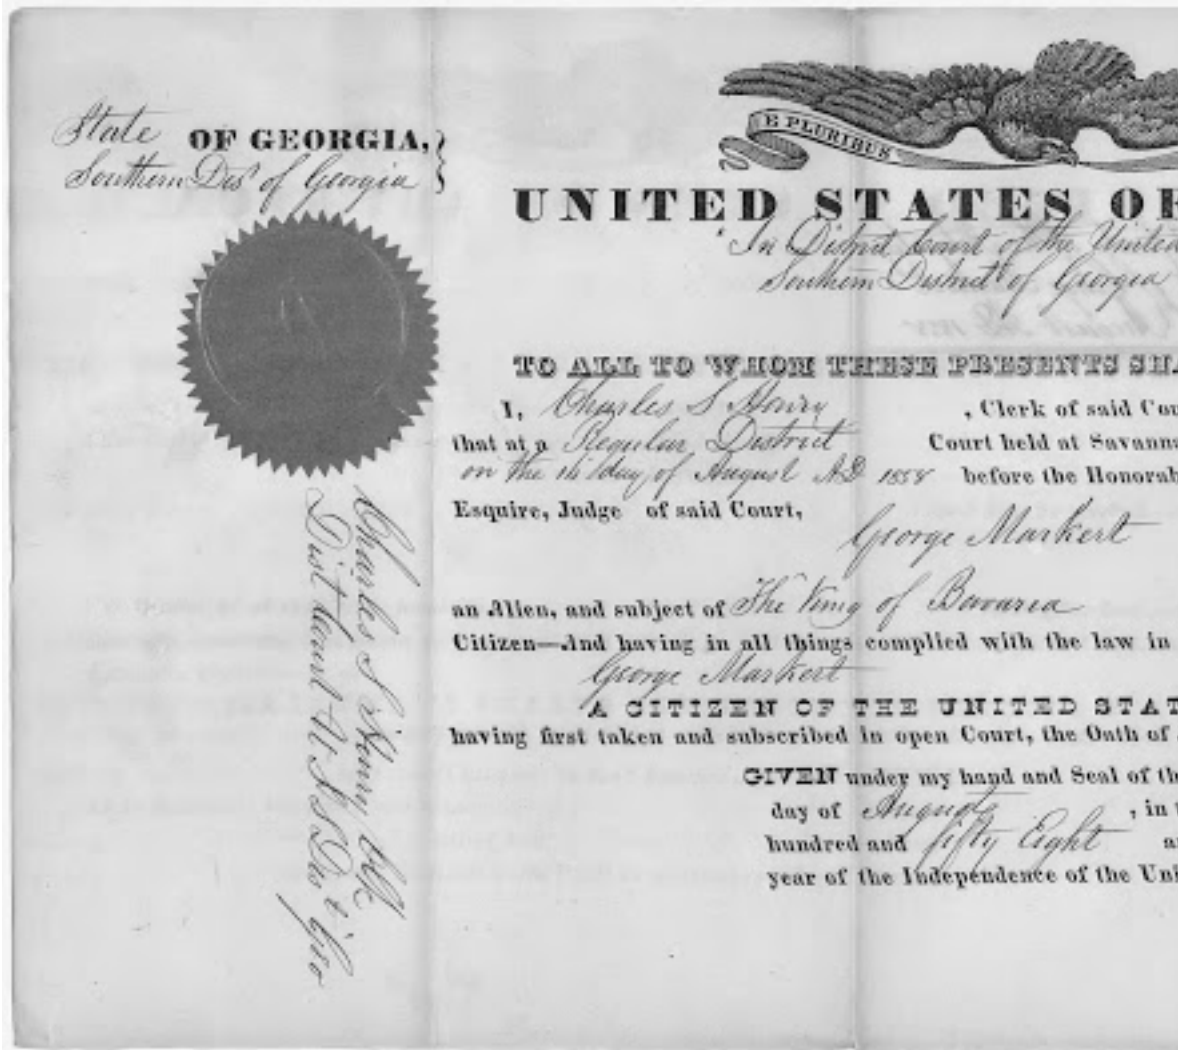 E PLURIBUS
State OF GEORGIA,
Southern Dist of Georgia
UNITED STATES OF
In District Court of the United
Southern District of Georgia
TO ALL TO WHOM THESE PRESENTS SHA
I, Charles S Henry , Clerk of said Cou
that at a Regular District Court held at Savanna
on the day of August AD 1858 before the Honorab
Esquire, Judge of said Court,
George Markert
an Alien, and subject of The King of Bavaria
Citizen—And having in all things complied with the law in
George Markert
A CITIZEN OF THE UNITED STAT
having first taken and subscribed in open Court, the Oath of
GIVEN under my hand and Seal of th
day of August , in t
hundred and fifty Eight a
year of the Independence of the Uni
Charles S Henry Clk
Dist Court U S So Dist Geo